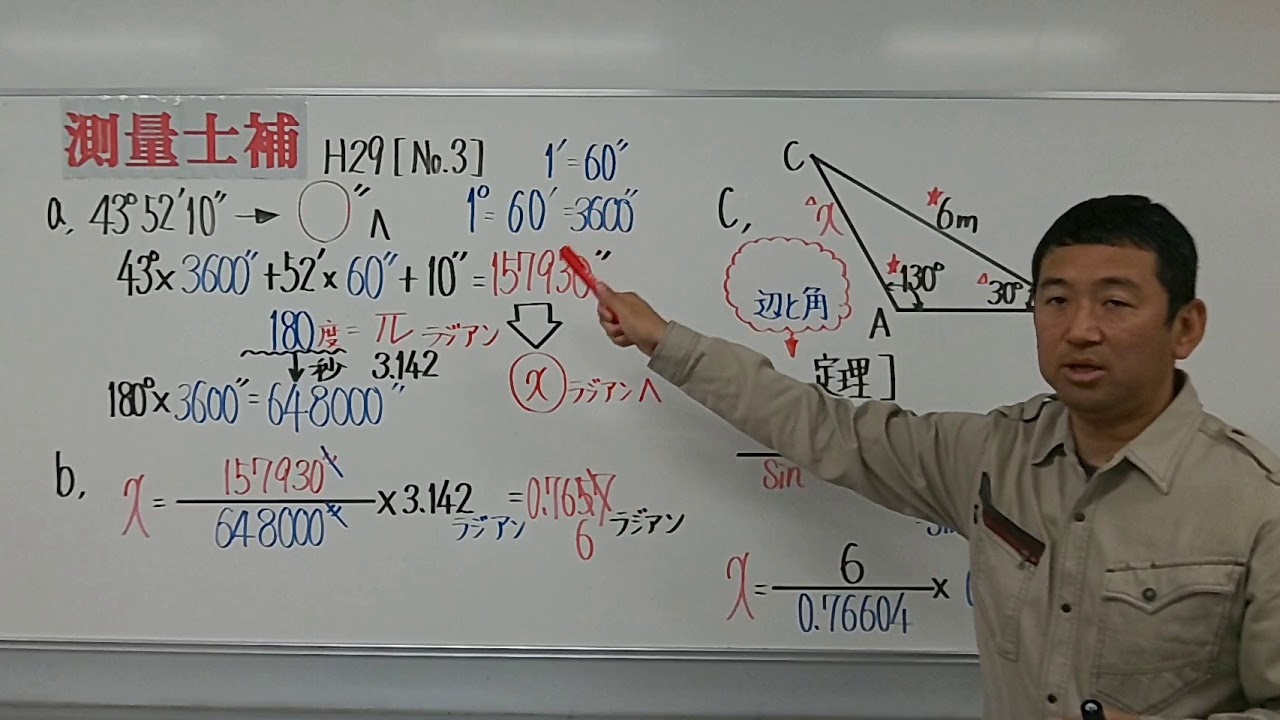 測量士補 H29[No.3] 1′=60″
a, 43°52′10″→○″へ 1°=60′=3600″
43°×3600″+52′×60″+10″=157930″
180度=πラジアン
秒 3.142
xラジアンへ
180°×3600″=648000″
b, x=157930″/648000″×3.142ラジアン=0.7657ラジアン
6
C,
辺と角
定理]
C
x
6m
130°
30°
A
Sin
Sin
x=6/0.76604×